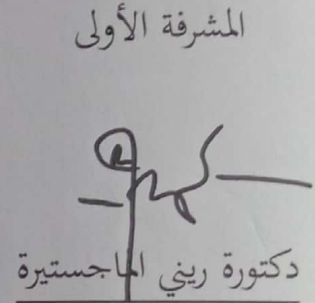 المشرفة الأولى
دكتورة ريني الماجستيرة